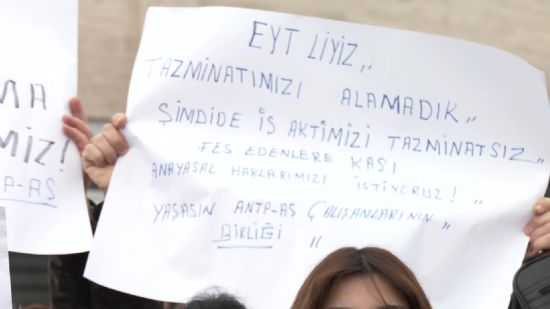 EYT LİYİZ,,
TAZMİNATIMIZI ALAMADIK,,
ŞİMDİDE İŞ AKTİMİZİ TAZMİNATSIZ,,
FES EDENLERE KAŞI
ANAYASAL HAKLARIMIZI İSTİYORUZ! ,,
YAŞASIN ANTP-AŞ ÇALIŞANLARININ,,
BİRLİĞİ ,,
MİZ!
P-AŞ